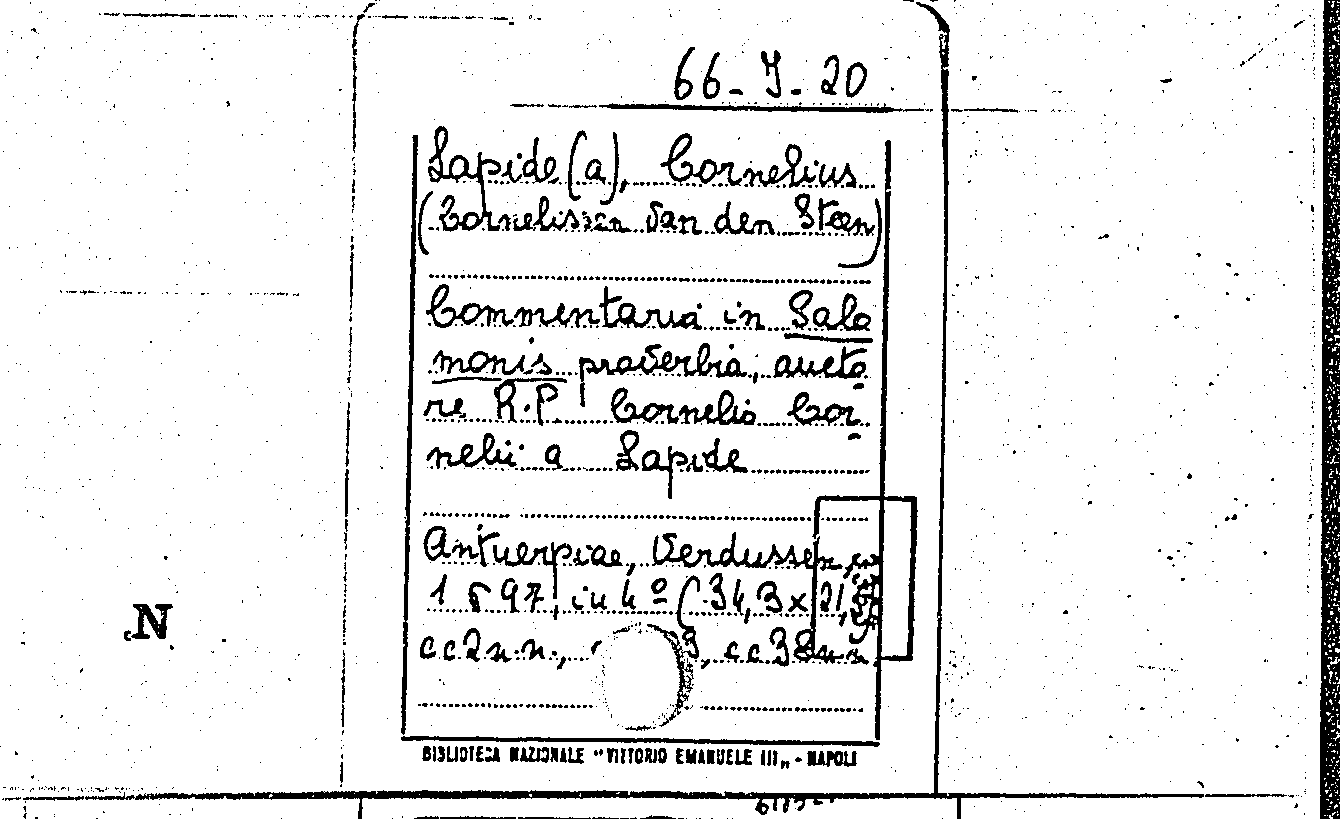 66-J-20
Lapide (a), Cornelius
(Cornelissen Van den Steen)
Commentaria in Salo
monis proverbia, aucto
re R.P. Cornelio Cor
nelii a Lapide
Antuerpiae, Verdussen,
1697, in 4º (34,3x21,
cc2n.n., 3, cc38n.n.
N
BIBLIOTECA NAZIONALE "VITTORIO EMANUELE III„ - NAPOLI